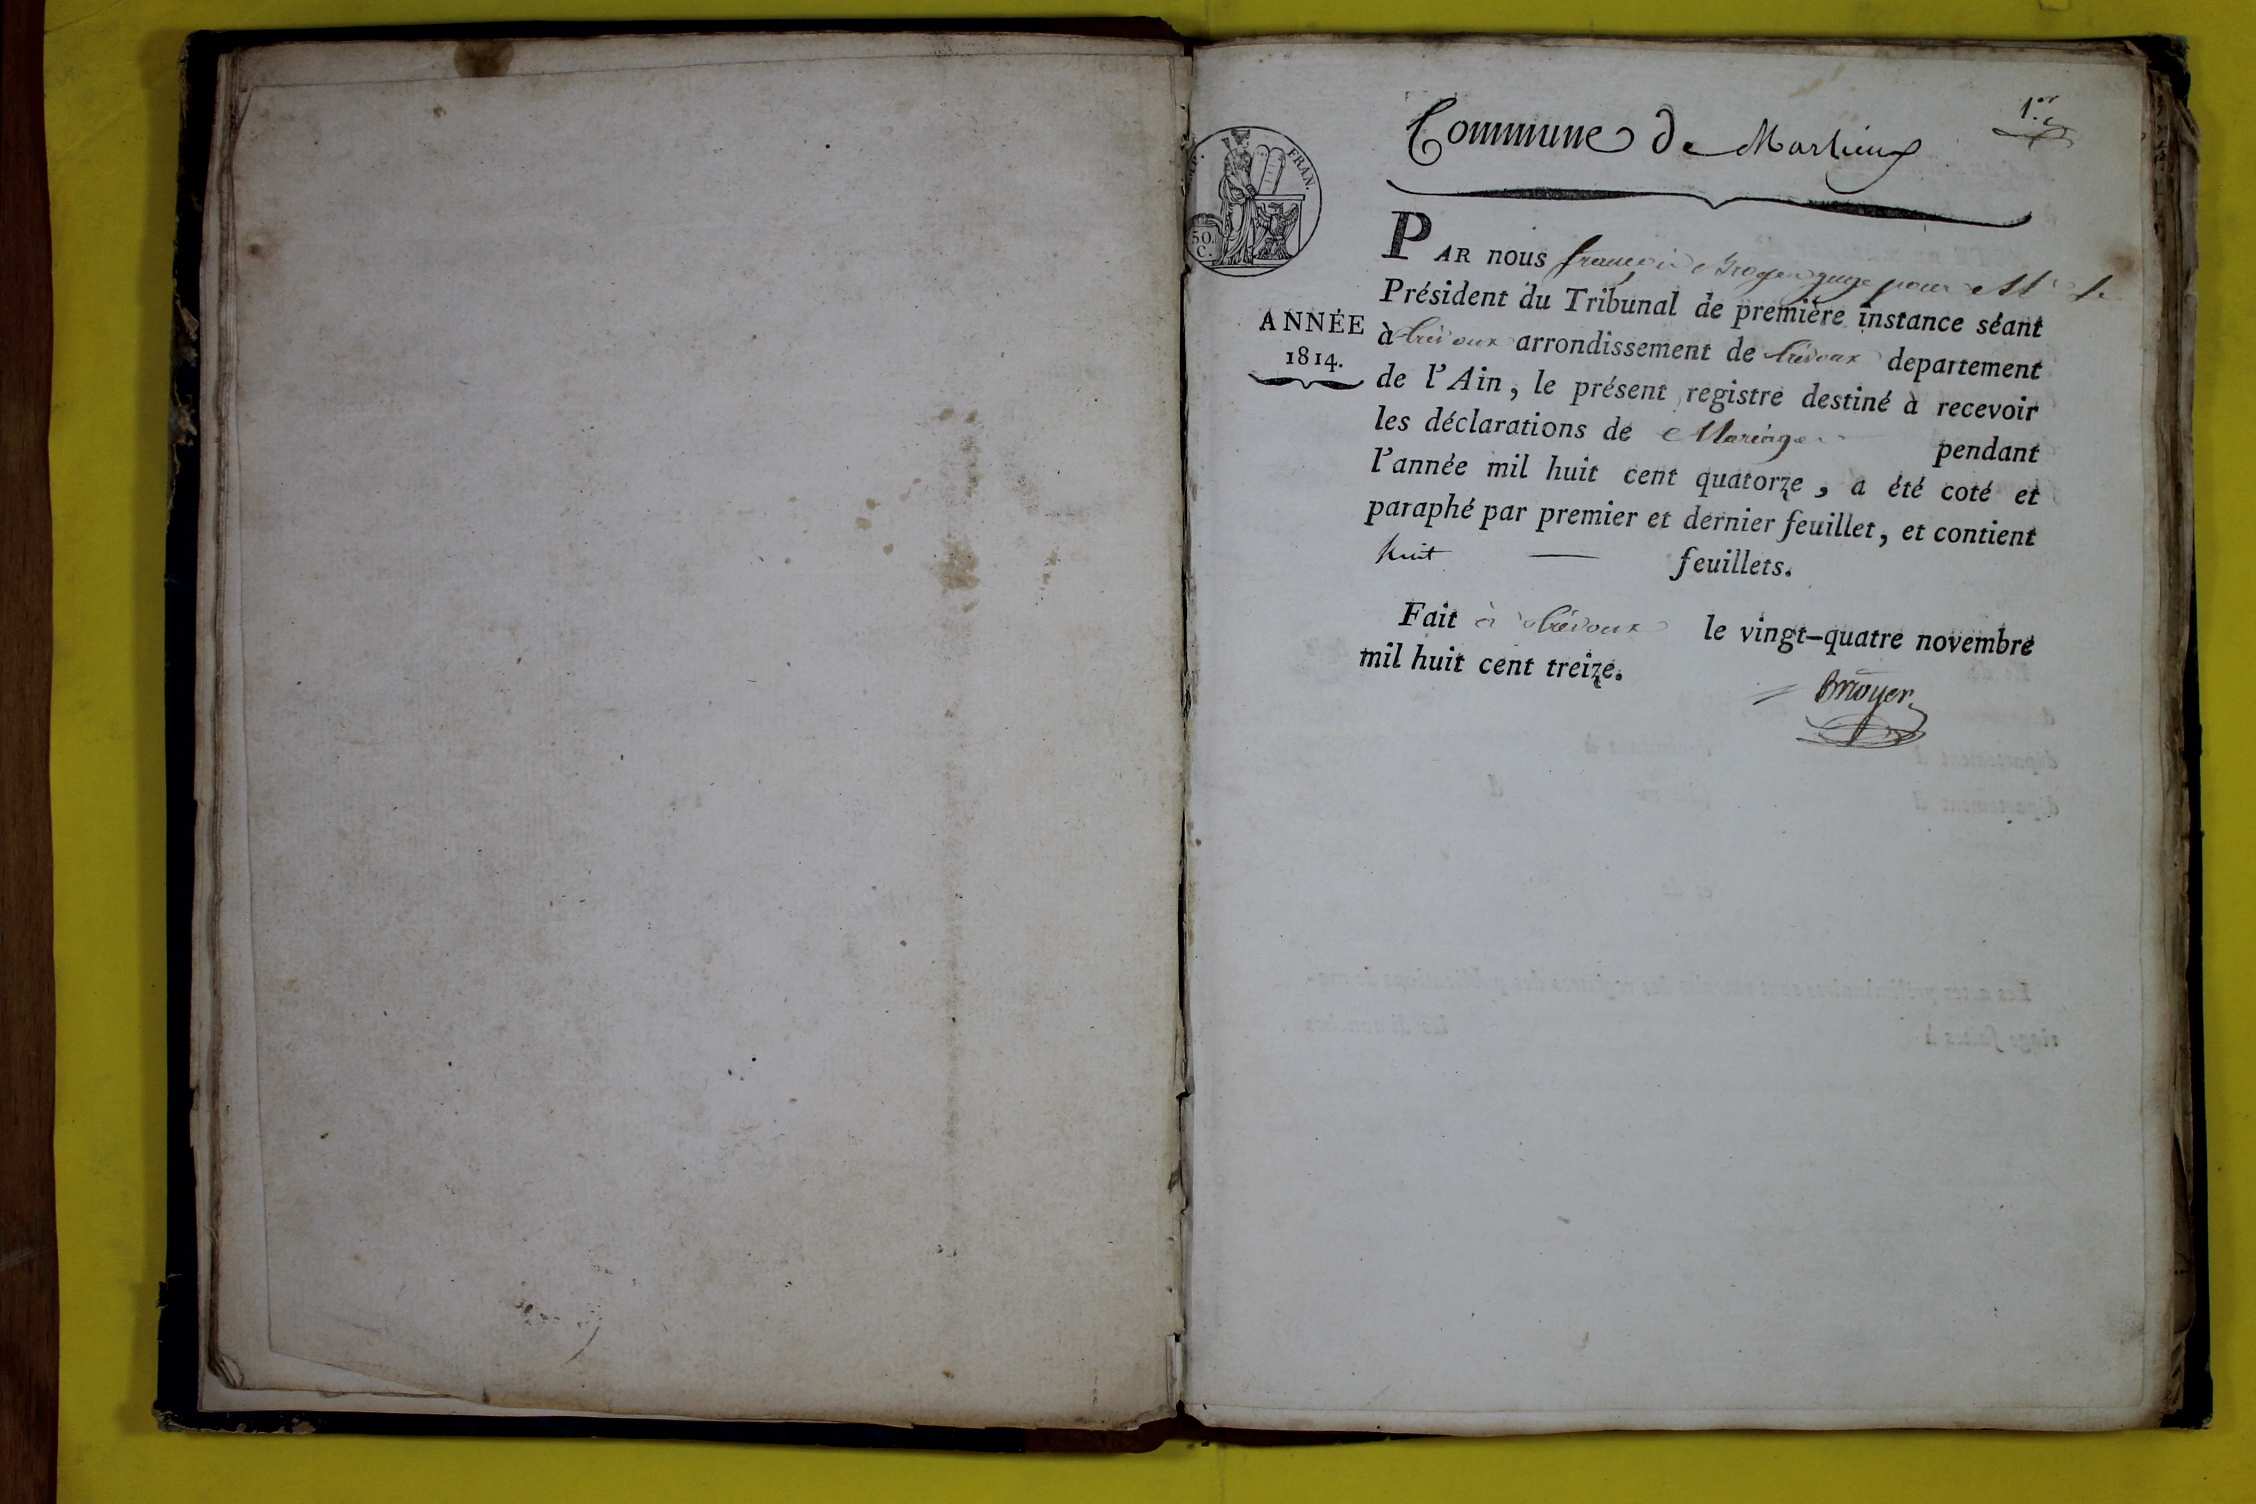 1.er
Commune de Marlieux
FRAN.
50.
C.
PAR nous françois Bruyer juge pour Mr. le
Président du Tribunal de première instance séant
ANNÉE
1814.
à trévoux arrondissement de trévoux departement
de l'Ain, le présent registre destiné à recevoir
les déclarations de Mariages pendant
l'année mil huit cent quatorze, a été coté et
paraphé par premier et dernier feuillet, et contient
huit — feuillets.
Fait à trévoux le vingt-quatre novembre
mil huit cent treize.
Bruyer